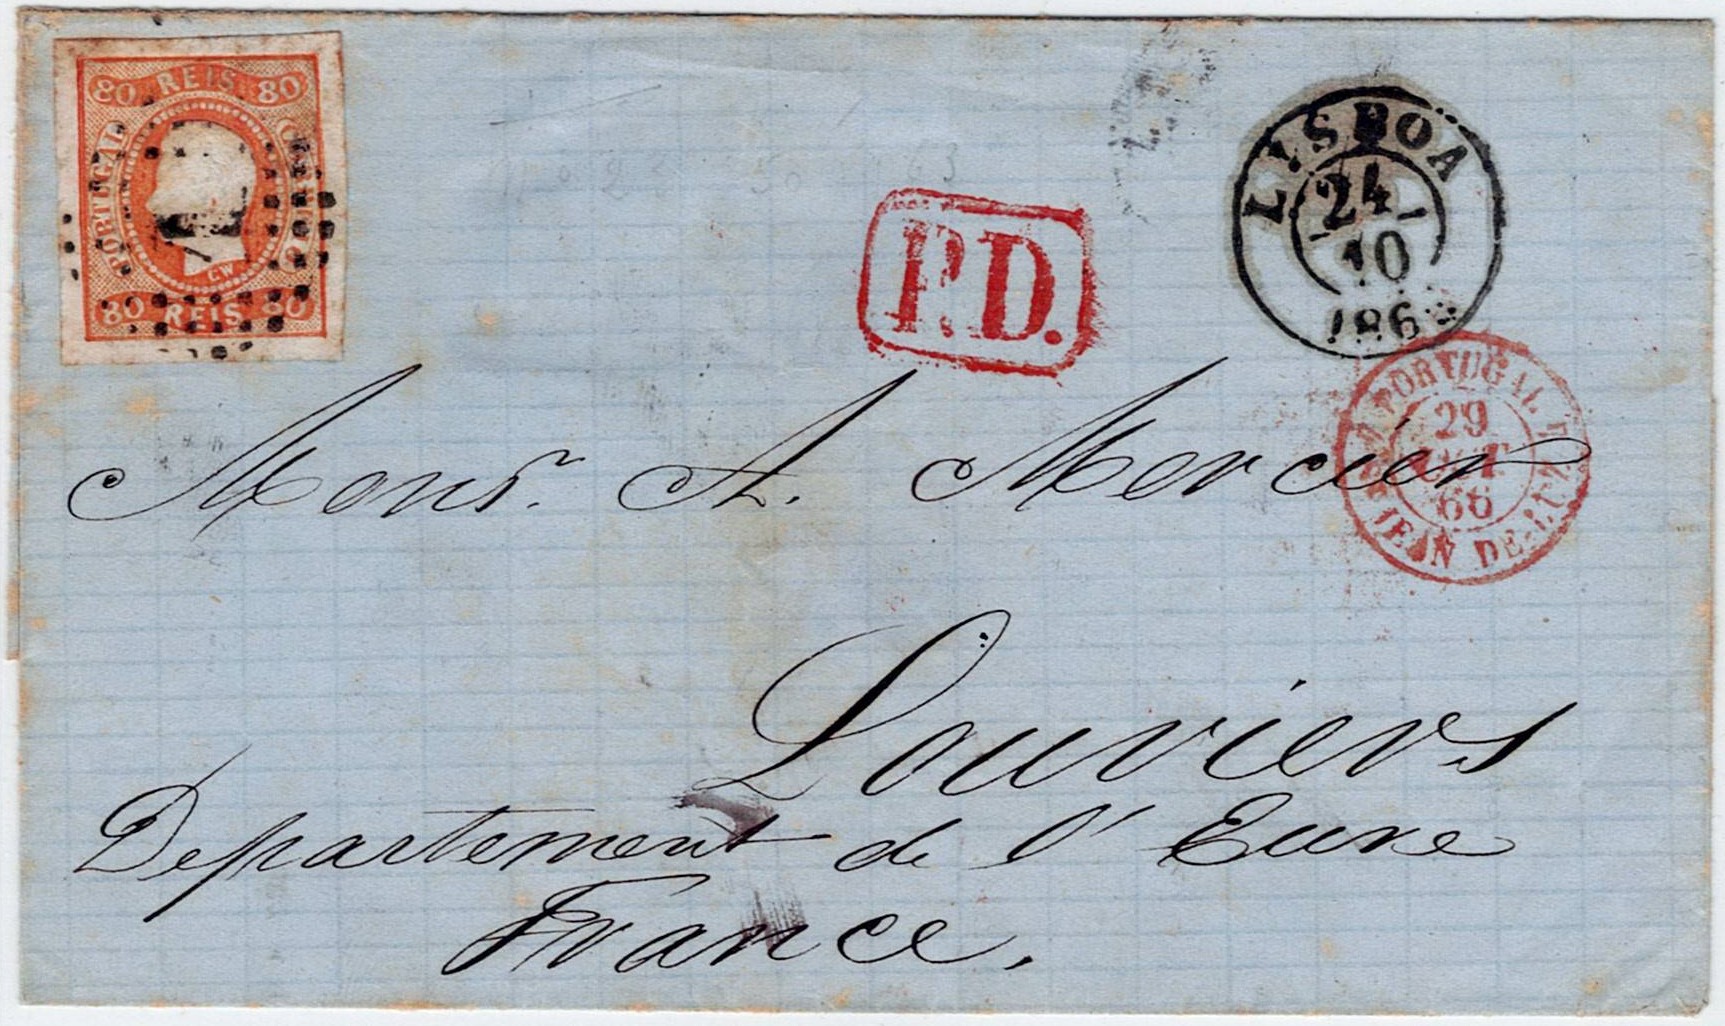 80 REIS 80
PORTUGAL
CORREIO
CW
80 REIS 80
P.D.
LISBOA
24
10
PORTUGAL
29
OCT
66
JEAN DE LUZ
Monsr. A. Mercier
Louviers
Departement de l'Eure
France.